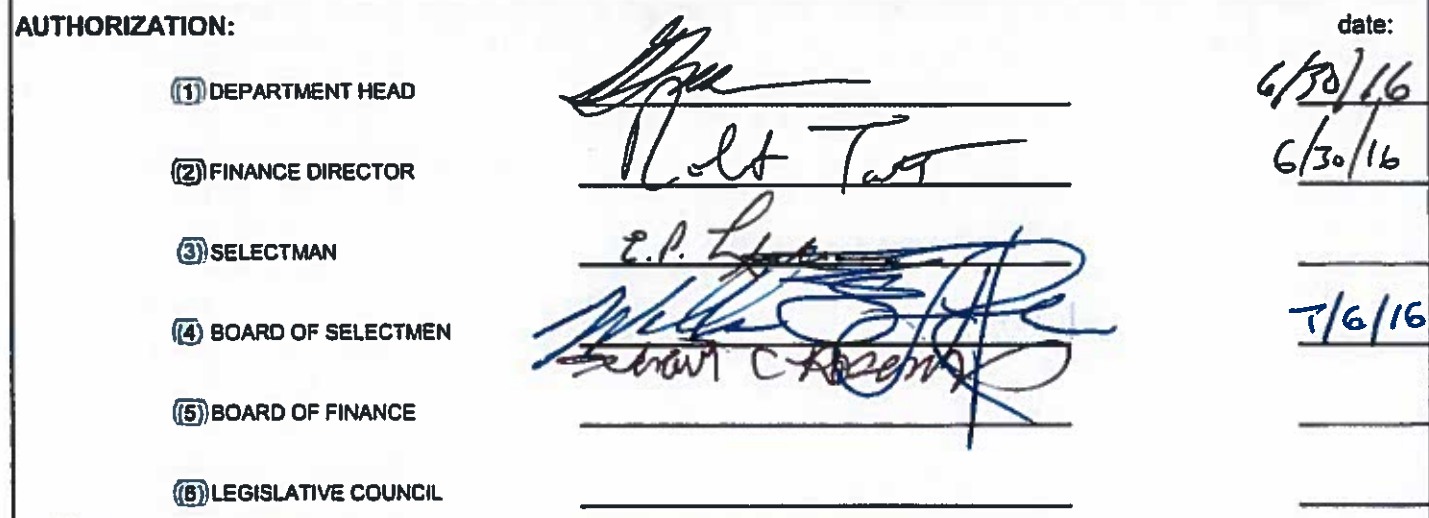 AUTHORIZATION: date:
(1) DEPARTMENT HEAD 6/30/16
(2) FINANCE DIRECTOR 6/30/16
(3) SELECTMAN E.P.
(4) BOARD OF SELECTMEN 7/6/16
(5) BOARD OF FINANCE
(6) LEGISLATIVE COUNCIL